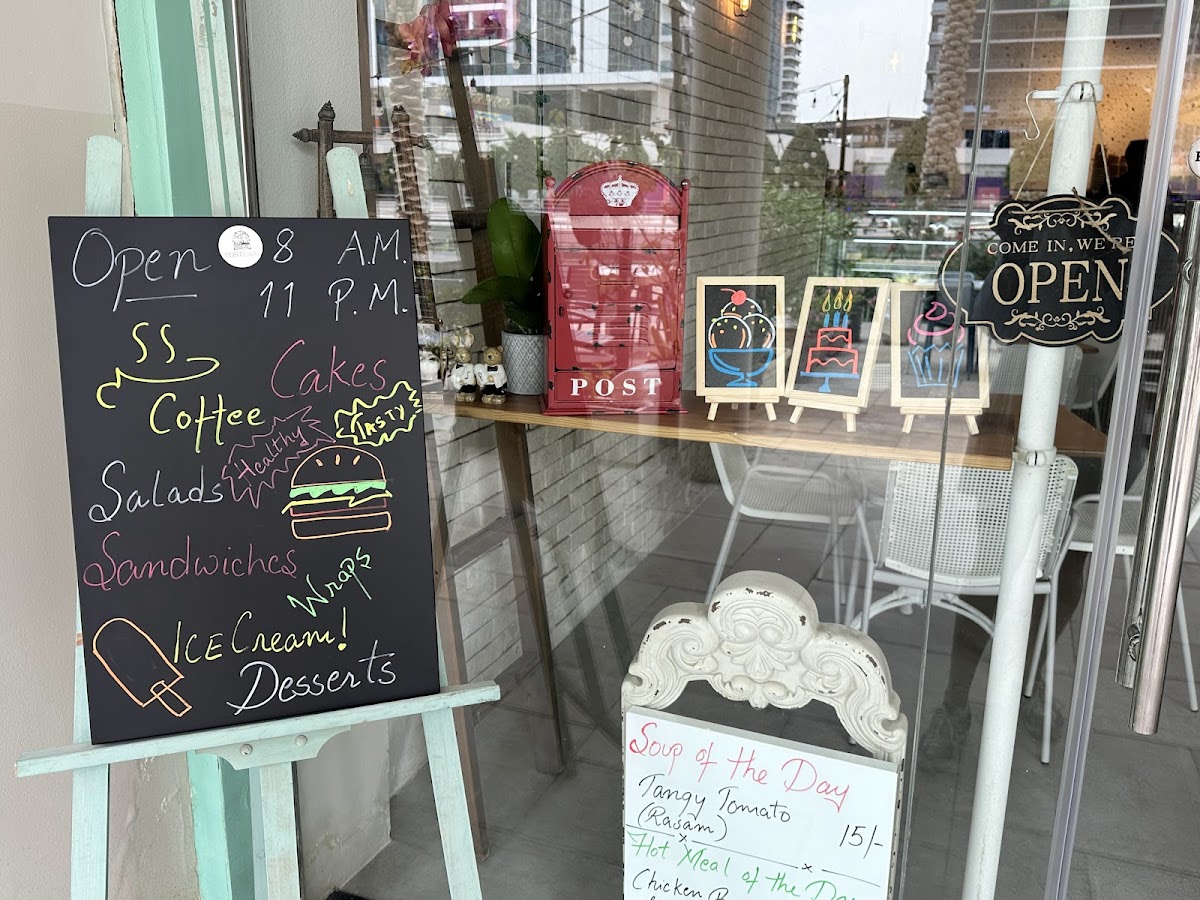 Open 8 A.M.
11 P.M.
Coffee
Cakes
TASTY
Healthy
Salads
Sandwiches
Wraps
ICE Cream!
Desserts
POST
COME IN, WE'RE
OPEN
Soup of the Day
Tangy Tomato
(Rasam) 15/-
Hot Meal of the Day
Chicken